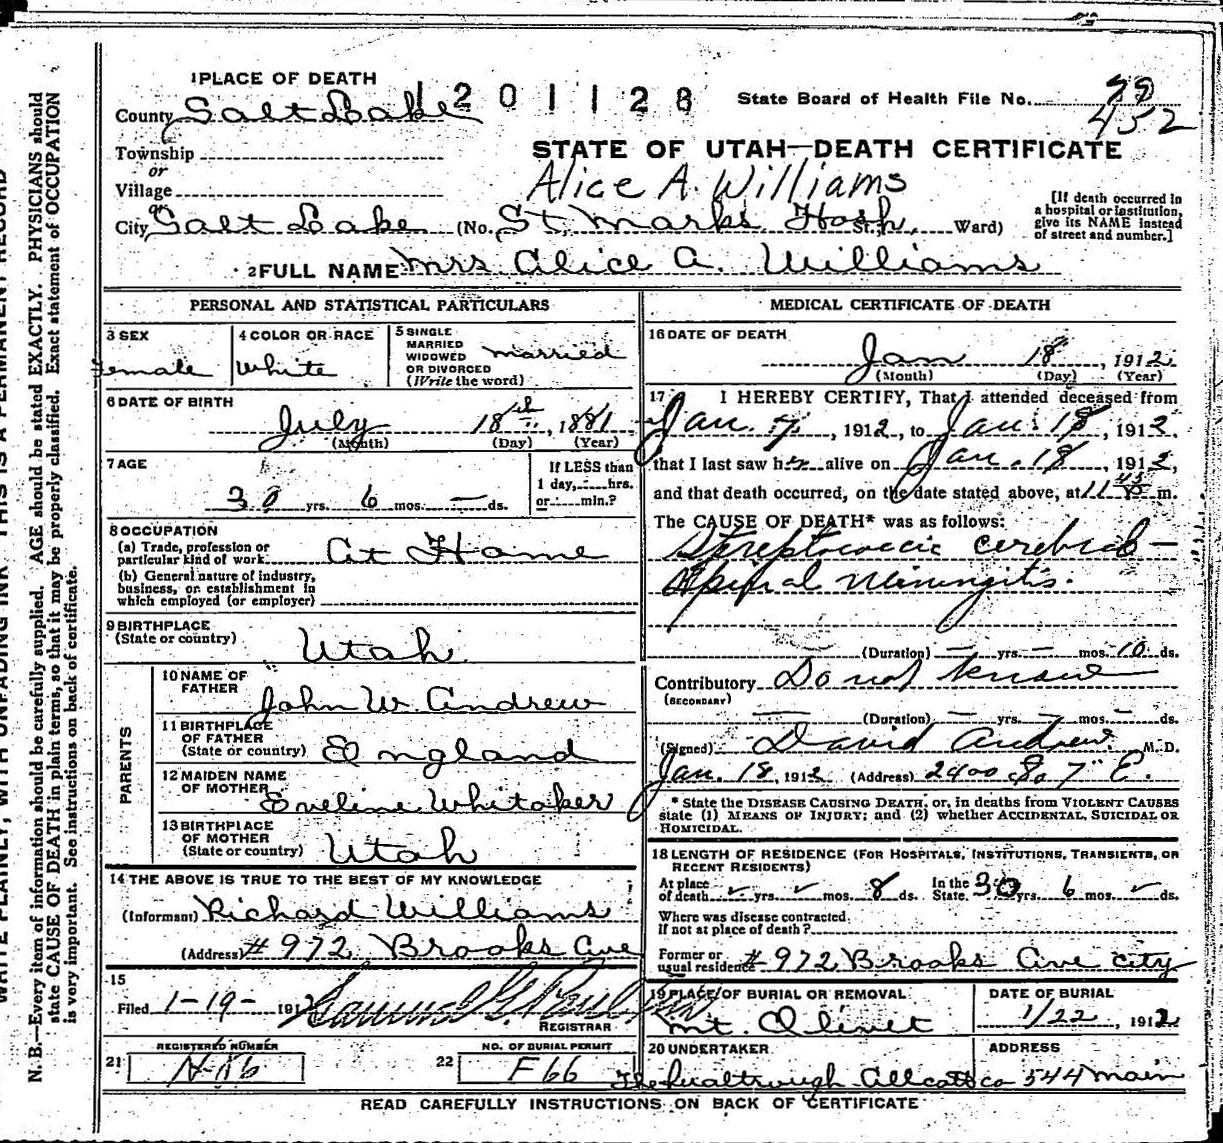 1 PLACE OF DEATH
1201128
State Board of Health File No.
452
County Salt Lake
STATE OF UTAH—DEATH CERTIFICATE
Township
or
Village
or
Alice A. Williams
City Salt Lake (No. St. Marks Hosp, St., Ward)
[If death occurred in
a hospital or institution,
give its NAME instead
of street and number.]
2 FULL NAME Mrs Alice A. Williams
PERSONAL AND STATISTICAL PARTICULARS
3 SEX
Female
4 COLOR OR RACE
White
5 SINGLE
MARRIED
WIDOWED
OR DIVORCED
(Write the word)
married
6 DATE OF BIRTH
July 18th, 1881
(Month) (Day) (Year)
7 AGE
30 yrs. 6 mos. — ds.
If LESS than
1 day, hrs.
or min.?
8 OCCUPATION
(a) Trade, profession or
particular kind of work At Home
(b) General nature of industry,
business, or establishment in
which employed (or employer)
9 BIRTHPLACE
(State or country)
Utah
PARENTS
10 NAME OF
FATHER
John W. Andrew
11 BIRTHPLACE
OF FATHER
(State or country)
England
12 MAIDEN NAME
OF MOTHER
Eveline Whitaker
13 BIRTHPLACE
OF MOTHER
(State or country)
Utah
14 THE ABOVE IS TRUE TO THE BEST OF MY KNOWLEDGE
(Informant) Richard Williams
(Address) #972 Brooks Ave
15
Filed 1-19- 1912 Samuel G. Paul
REGISTRAR
21
REGISTERED NUMBER
22
NO. OF BURIAL PERMIT
F66
MEDICAL CERTIFICATE OF DEATH
16 DATE OF DEATH
Jan 18, 1912
(Month) (Day) (Year)
17 I HEREBY CERTIFY, That I attended deceased from
Jan. 7, 1912, to Jan. 18, 1912.
that I last saw her alive on Jan. 18, 1912,
and that death occurred, on the date stated above, at 11 45 m.
The CAUSE OF DEATH* was as follows:
Streptococcic cerebro-
spinal Meningitis.
(Duration) — yrs. — mos. 10 ds.
Contributory Do not know
(SECONDARY)
(Duration) — yrs. — mos. — ds.
(Signed) David Andrew M. D.
Jan. 18, 1912 (Address) 2400 So 7" E.
* State the DISEASE CAUSING DEATH, or, in deaths from VIOLENT CAUSES
state (1) MEANS OF INJURY; and (2) whether ACCIDENTAL, SUICIDAL OR
HOMICIDAL.
18 LENGTH OF RESIDENCE (FOR HOSPITALS, INSTITUTIONS, TRANSIENTS, OR
RECENT RESIDENTS)
At place
of death yrs. mos. 8 ds.
In the
State 30 yrs. 6 mos. ds.
Where was disease contracted
If not at place of death?
Former or
usual residence #972 Brooks Ave City
19 PLACE OF BURIAL OR REMOVAL
Mt. Olivet
DATE OF BURIAL
1/22, 1912
20 UNDERTAKER
ADDRESS
544 Main
READ CAREFULLY INSTRUCTIONS ON BACK OF CERTIFICATE
WRITE PLAINLY, WITH UNFADING INK—THIS IS A PERMANENT RECORD
N. B.—Every item of information should be carefully supplied. AGE should be stated EXACTLY. PHYSICIANS should
state CAUSE OF DEATH in plain terms, so that it may be properly classified. Exact statement of OCCUPATION
is very important. See instructions on back of certificate.